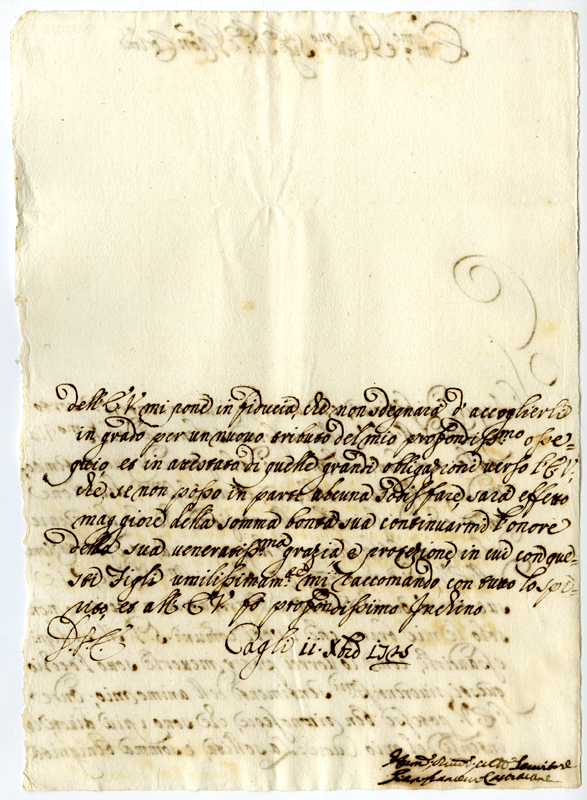 dell'E.V. mi pone in fiducia, che non sdegnarà d'accoglierle
in grado per un nuovo tributo del mio profondiss.mo osse-
quio, et in attestato di quelle grandi obbligazione verso l'E.V.,
che, se non posso in parte alcuna sodisfare, sarà effetto
maggiore della somma bontà sua continuarmi l'onore
della sua veneratiss.ma grazia e protezione, in cui con que-
sti Figli umilissimam.te mi raccomando con tutto lo spi-
rito, et all'E.V. fò profondissimo Inchino
D.V.E.
Cagli 11. Xbre 1745
Hum.